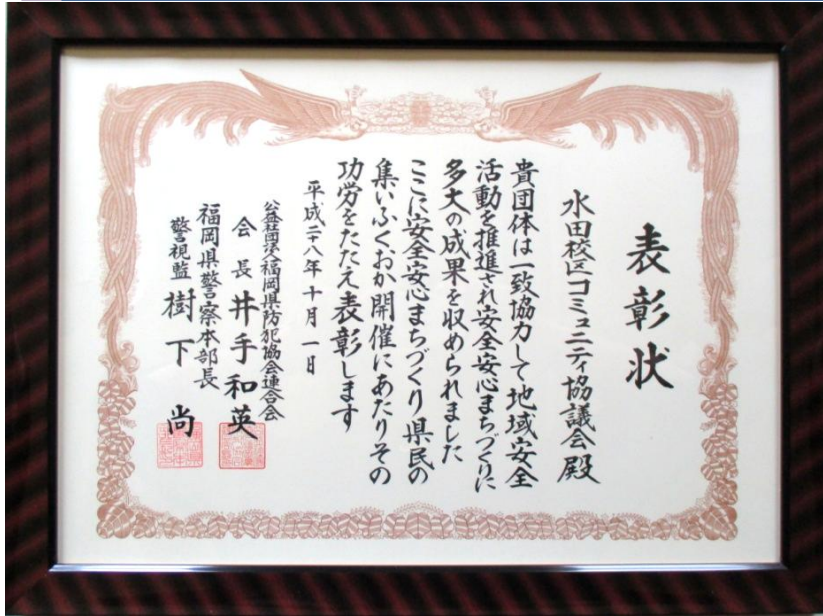 表彰状
水田校区コミュニティ協議会殿
貴団体は一致協力して地域安全
活動を推進され安全安心まちづくりに
多大の成果を収められました
ここに安全安心まちづくり県民の
集いふくおか開催にあたりその
功労をたたえ表彰します
平成二八年十月一日
公益社団法人福岡県防犯協会連合会
会長 井手和英
福岡県警察本部長
警視監 樹下尚